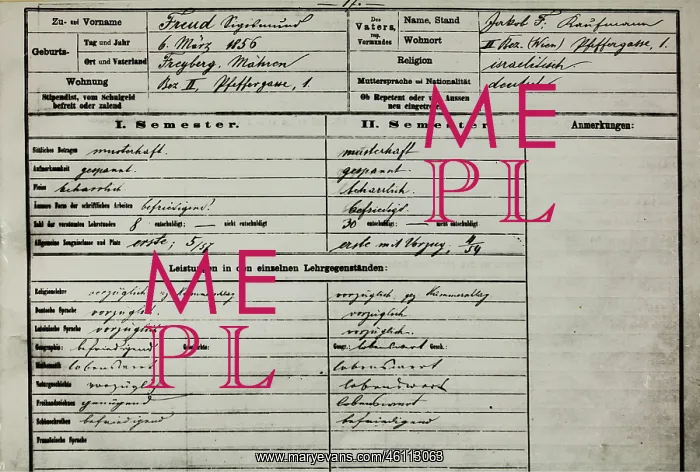 Zu- und Vorname Freud Sigismund Des Vaters, resp. Vormundes Name, Stand Jakob F. Kaufmann
Geburts- Tag und Jahr 6. März 1856 Wohnort II Bez. (Wien) Pfeffergasse, 1.
Ort und Vaterland Freyberg, Mähren Religion israelitisch
Wohnung Bez II, Pfeffergasse, 1. Muttersprache und Nationalität
Stipendist, vom Schulgeld befreit oder zalend Ob Repetent oder von Aussen neu eingetreten
I. Semester. II. Semester. Anmerkungen:
Sittliches Betragen musterhaft musterhaft
Aufmerksamkeit gespannt. gespannt.
Fleiss beharrlich beharrlich.
Äussere Form der schriftlichen Arbeiten befriedigend befriedigd.
Zahl der versäumten Lehrstunden 8 entschuldigt; — nicht entschuldigt 30 entschuldigt; — nicht entschuldigt
Allgemeine Zeugnissclasse und Platz erste; 5/57 erste mit Vorzug, 4/54
Leistungen in den einzelnen Lehrgegenständen:
Religionslehre vorzüglich vorzüglich
Deutsche Sprache vorzüglich. vorzüglich
Lateinische Sprache vorzüglich vorzüglich.
Geographie: befriedigend Geschichte: Geogr.: lobenswert Gesch.:
Mathematik lobenswert lobenswert
Naturgeschichte vorzüglich lobenswert
Freihandzeichnen genügend lobenswert
Schönschreiben befriedigend befriedigend
Französische Sprache
ME
PL
ME
PL
www.maryevans.com/46113063